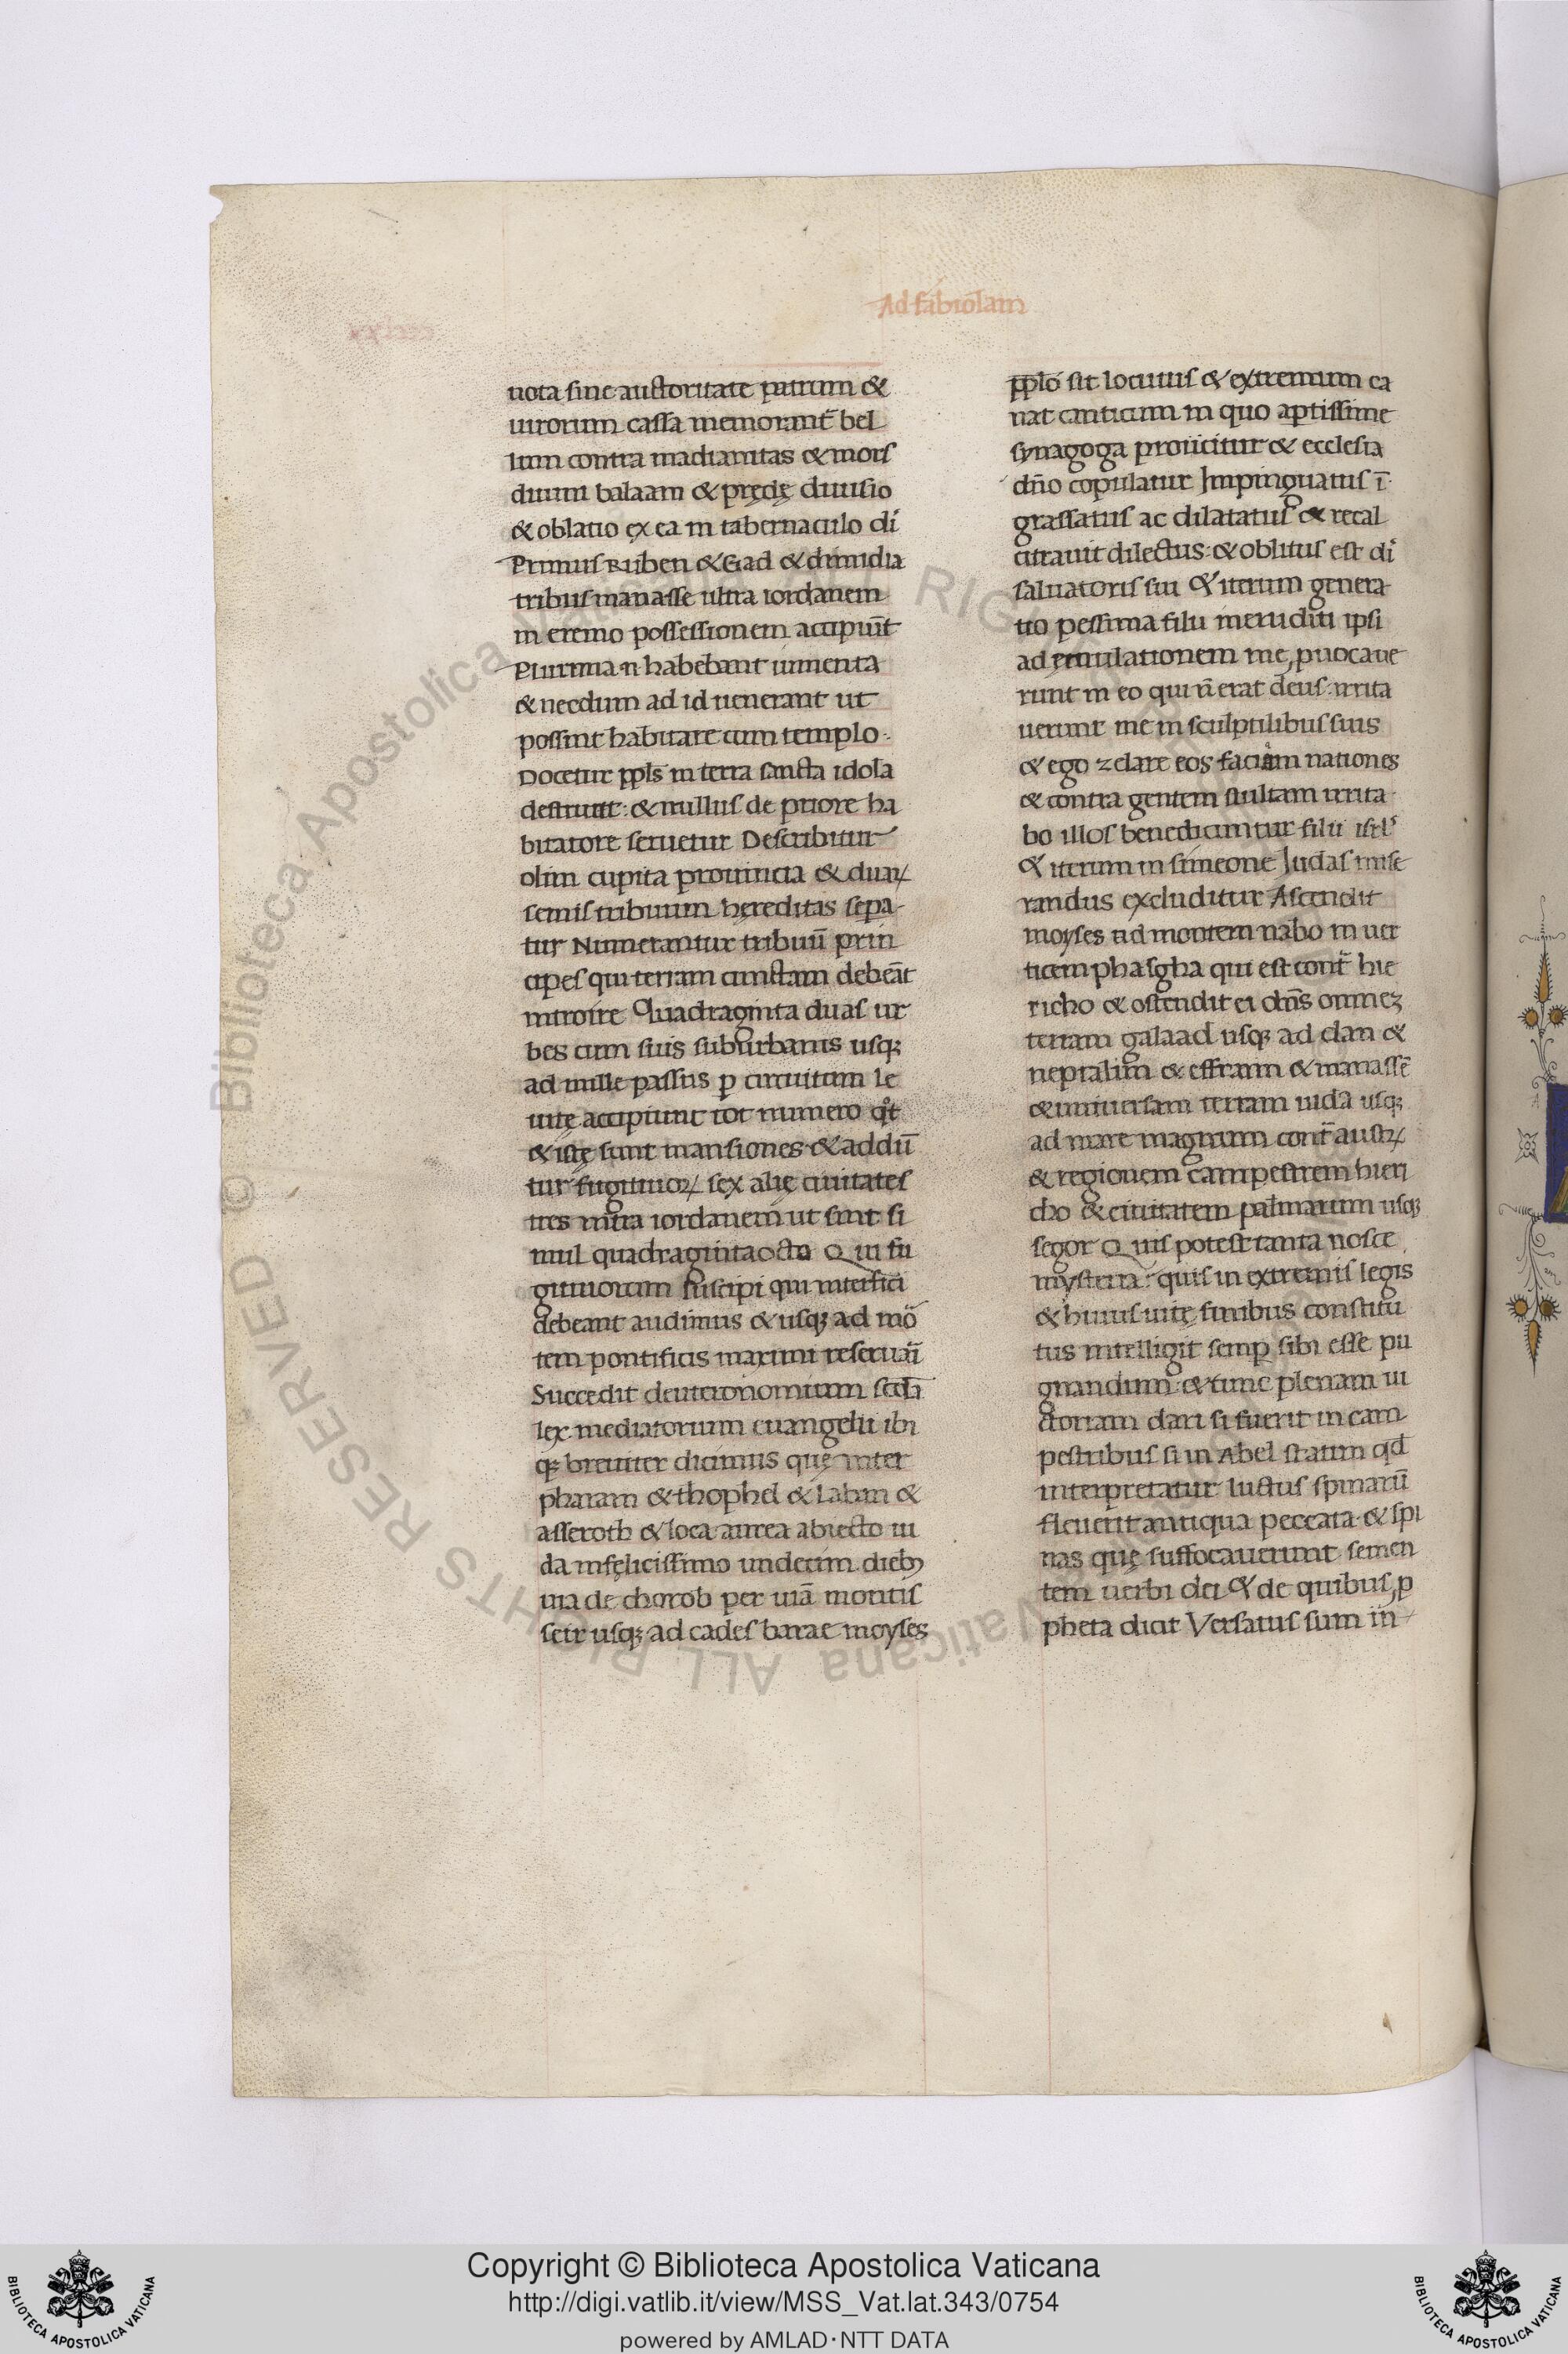 Ad fabiolam
uota sine auctoritate patrum &
uirorum cassa memorant̄ bel
lum contra madianitas & mors
diuini balaam & pręde̜ diuisio
& oblatio ex ea in tabernaculo di
Primus Ruben & Gad & dimidia
tribus manasse ultra iordanem
in eremo possessionem accipiūt
Plurima n̄ habebant iumenta
& necdum ad id uenerant ut
possint habitare cum templo.
Docetur ppl̄s in terra sancta idola
destruat: & nullus de priore ha
bitatore seruetur Describitur
olim cupita prouincia & duaꝝ
semis tribuum hęreditas sepa
tur Numerantur tribuū prin
cipes qui terram cunctam debeāt
introire Quadraginta duas ur
bes cum suis suburbanis usqꝫ
ad mille passus ꝑ circuitum le
uitę accipiunt tot numero qͦt
& istę sunt mansiones & addū
tur fugitiuoꝝ sex alię ciuitates
tres intra iordanem ut sint si
mul quadraginta octo Qui fu
gitiuorum suscipi qui interfici
debeant audimus & usqꝫ ad mō
tem pontificis maximi reseruāī
Succedit deuteronomium secd̄a
lex mediatorium euangelii ibi
qꝫ breuiter dicimus quę inter
pharam & thophel & labam &
asseroth & loca aurea abiecto iu
da infelicissimo undecim diebꝫ
uia de chorob per uiā montis
seir usqꝫ ad cades barae moyses
pplō sit locutus & extremum ca
nat canticum in quo aptissime
synagoga proiicitur & ecclesia
dn̄o copulatur Impinguatus ī
grassatus ac dilatatus & recal
citrauit dilectus: & oblitus est di
saluatoris sui & iterum genera
tio pessima filii ineruditi ipsi
ad ęmulationem me ꝓuocaue
runt in eo qui n̄ erat deus: irrita
uerunt me in sculptilibus suis
& ego zelare eos faciam nationes
& contra gentem stultam irrita
bo illos benedicuntur filii isrl̄
& iterum in simeone Iudas mise
randus excluditur Ascendit
moyses ad montem nabo in uer
ticem phasgha qui est cont̄ hie
richo & ostendit ei dn̄s omneꝫ
terram galaad usqꝫ ad dan &
neptalim & effraim & manassē
& uniuersam terram iuda usqꝫ
ad mare magnum cont̄ austꝝ
& regionem campestrem hieri
cho & ciuitatem palmarum usqꝫ
segor Quis potest tanta nosce
mysteria: quis in extremis legis
& huius uitę finibus constitu
tus intelligit semꝑ sibi esse pu
gnandum: & tunc plenam ui
ctoriam dari si fuerit in cam
pestribus si in Abel statim qd̄
interpretatur luctus spinarū
fleuerit antiqua peccata & spi
nas quę suffocauerunt semen
tem uerbi dei & de quibus ꝓ
pheta dicit Versatus sum in
© Biblioteca Apostolica Vaticana ALL RIGHTS RESERVED
Copyright © Biblioteca Apostolica Vaticana
http://digi.vatlib.it/view/MSS_Vat.lat.343/0754
powered by AMLAD·NTT DATA
BIBLIOTECA APOSTOLICA VATICANA
BIBLIOTECA APOSTOLICA VATICANA